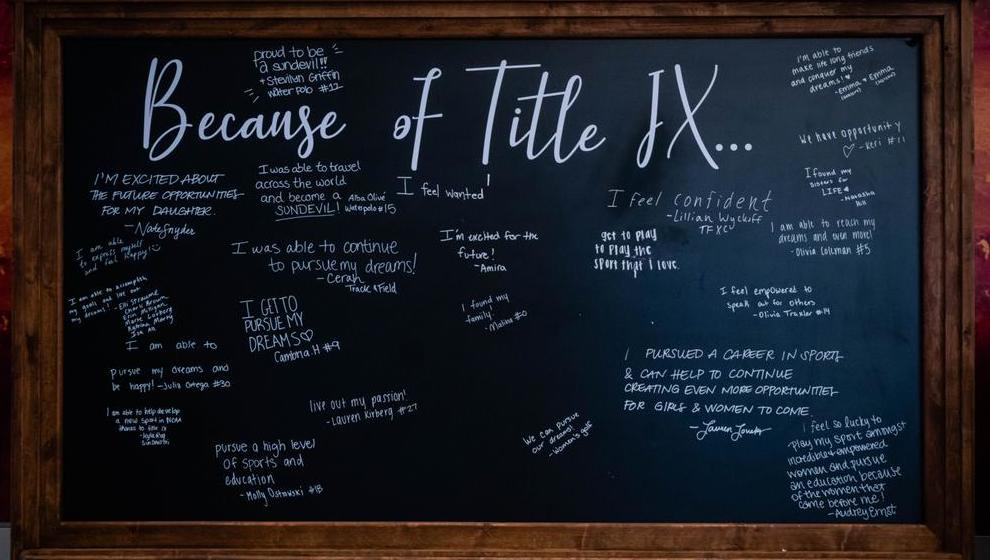 proud to be
a sundevil!!
Griffin
Water polo #12
Because of Title IX...
I'm able to
make life long friends
and conquer my
dreams!
- Emma + Emma
We have opportunity
- Keri #11
I found my
sisters for
LIFE
- Natasha
I'M EXCITED ABOUT
THE FUTURE OPPORTUNITIES
FOR MY DAUGHTER.
- Nate Snyder
I was able to travel
across the world
and become a
SUNDEVIL!
Alba Olivé
Waterpolo #15
I feel wanted!
I feel confident
- Lillian Wyckoff
TFXC
I am able to reach my
dreams and even more!
- Olivia Coleman #5
I am able
to express myself
and feel happy!
I was able to continue
to pursue my dreams!
- Cerah
Track & Field
I'm excited for the
future!
- Amira
get to play
to play the
sport that i love.
I am able to accomplish
my goals and live out
my dreams!
I GET TO
PURSUE MY
DREAMS♡
Cambria.H #9
I found my
family
- Malina #0
I feel empowered to
speak out for others
- Olivia Traxler #14
I am able to
pursue my dreams and
be happy! - Julia Ortega #30
I PURSUED A CAREER IN SPORTS
& CAN HELP TO CONTINUE
CREATING EVEN MORE OPPORTUNITIES
FOR GIRLS & WOMEN TO COME.
I am able to help develop
a new sport in NCAA
thanks to title ix
live out my passion!
- Lauren Kirberg #27
We can pursue
our dreams!
- Women's golf
pursue a high level
of sports and
education
- Molly Ostrowski #18
i feel so lucky to
play my sport amongst
incredible + empowered
women and pursue
an education because
of the women that
came before me!
- Audrey Ernst